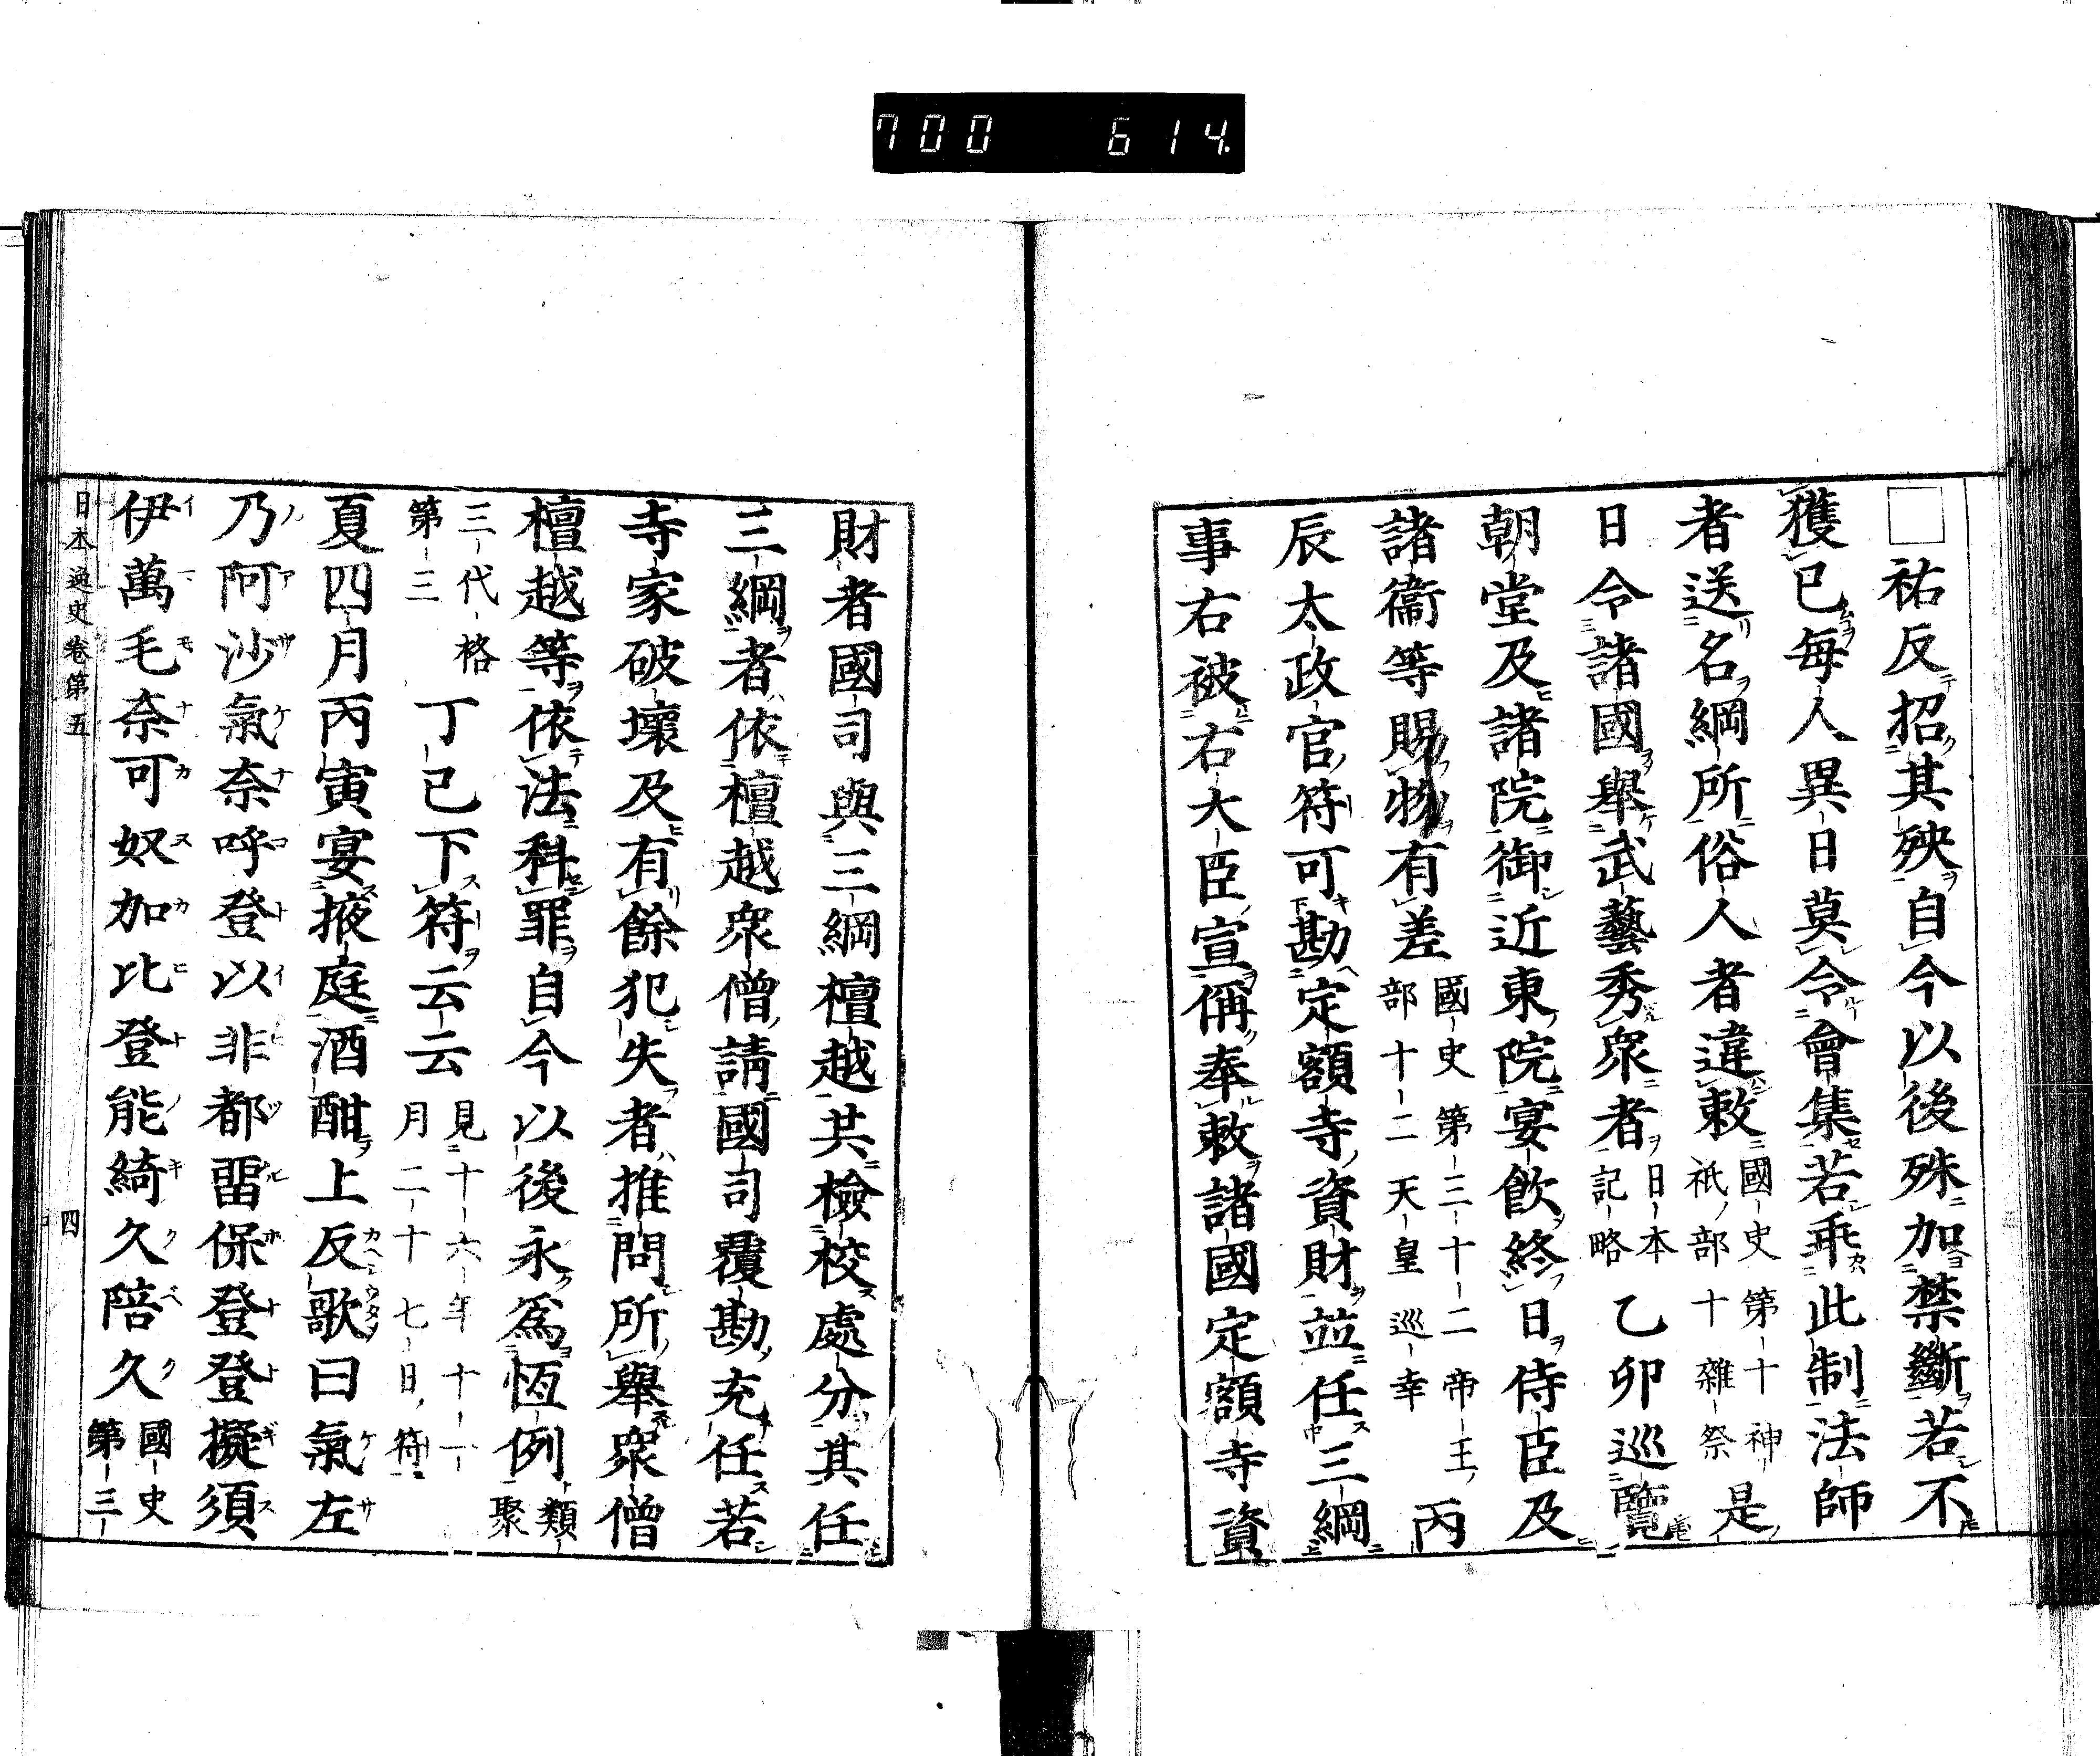 700 614
□祐反招其殃自今以後殊加禁斷若不
獲已每人異日莫令會集若乖此制法師
者送名綱所俗人者違敕國史第十神祇部十雜祭是
日令諸國舉武藝秀衆者日本記略乙卯巡覽
朝堂及諸院御近東院宴飮終日侍臣及
諸衞等賜物有差國史第三十二帝王部十二天皇巡幸丙
辰太政官符可勘定額寺資財並任三綱
事右被右大臣宣偁奉敕諸國定額寺資
財者國司與三綱檀越共檢校處分其任
三綱者依檀越衆僧請國司覆勘充任若
寺家破壞及有餘犯失者推問所舉衆僧
檀越等依法科罪自今以後永爲恆例類聚
三代格第三丁巳下符云云見十六年十一月二十七日符
夏四月丙寅宴掖庭酒酣上反歌曰氣左
乃阿沙氣奈呼登以非都留保登登擬須
伊萬毛奈可奴加比登能綺久陪久國史第三
日本逸史卷第五 四